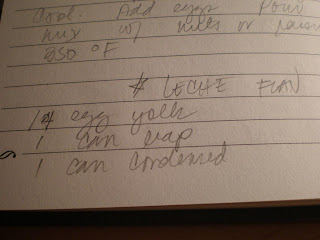 Cool. Add eggs Pour
mix w/ nuts or
350 °F
* LECHE FLAN
14 egg yolk
1 can evap
1 can condensed